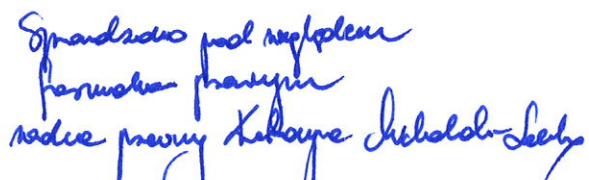 Sprawdzono pod względem
formalno prawnym
radca prawny Katarzyna